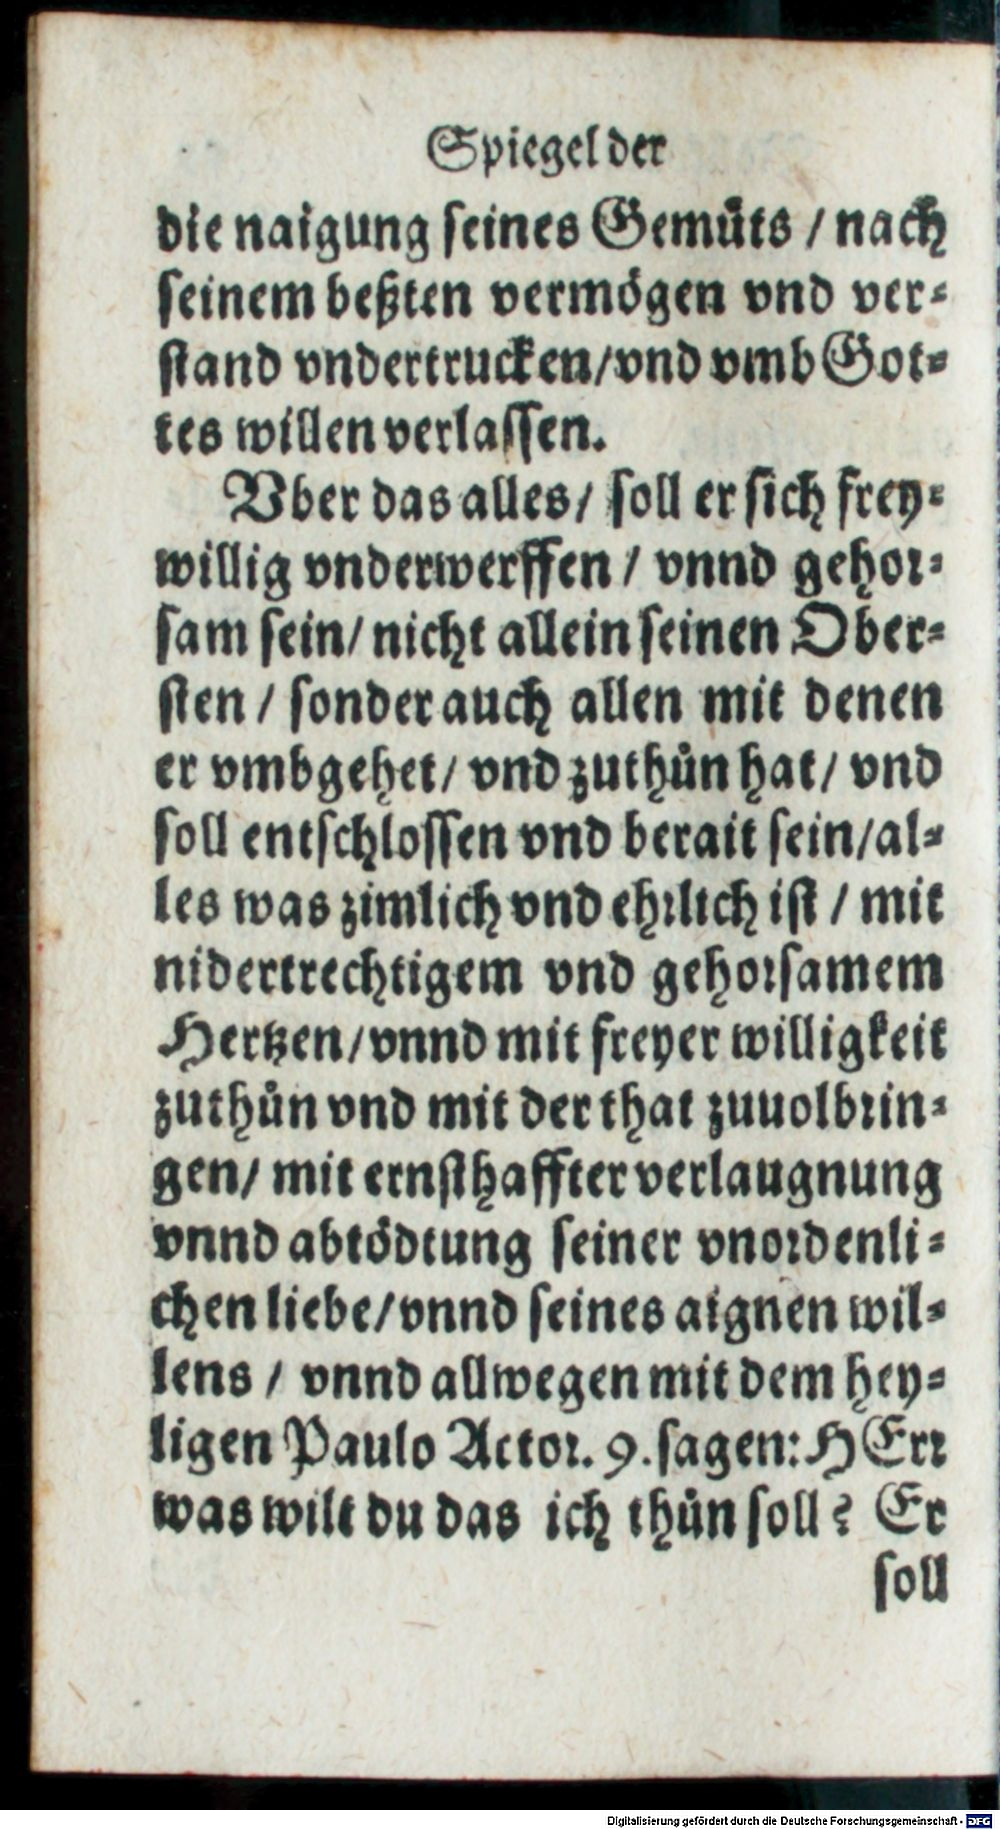 Spiegel der
die naigung seines Gemüts / nach
seinem beßten vermögen vnd ver-
stand vndertrucken/vnd vmb Got-
tes willen verlassen.
Vber das alles/ soll er sich frey-
willig vnderwerffen / vnnd gehor-
sam sein/ nicht allein seinen Ober-
sten / sonder auch allen mit denen
er vmbgehet/ vnd zuthůn hat/ vnd
soll entschlossen vnd berait sein/al-
les was zimlich vnd ehrlich ist / mit
nidertrechtigem vnd gehorsamem
Hertzen/vnnd mit freyer willigkeit
zuthůn vnd mit der that zuuolbrin-
gen/ mit ernsthaffter verlaugnung
vnnd abtödtung seiner vnordenli-
chen liebe/vnnd seines aignen wil-
lens / vnnd allwegen mit dem hey-
ligen Paulo Actor. 9. sagen: HErr
was wilt du das ich thůn soll? Er
soll
Digitalisierung gefördert durch die Deutsche Forschungsgemeinschaft - DFG